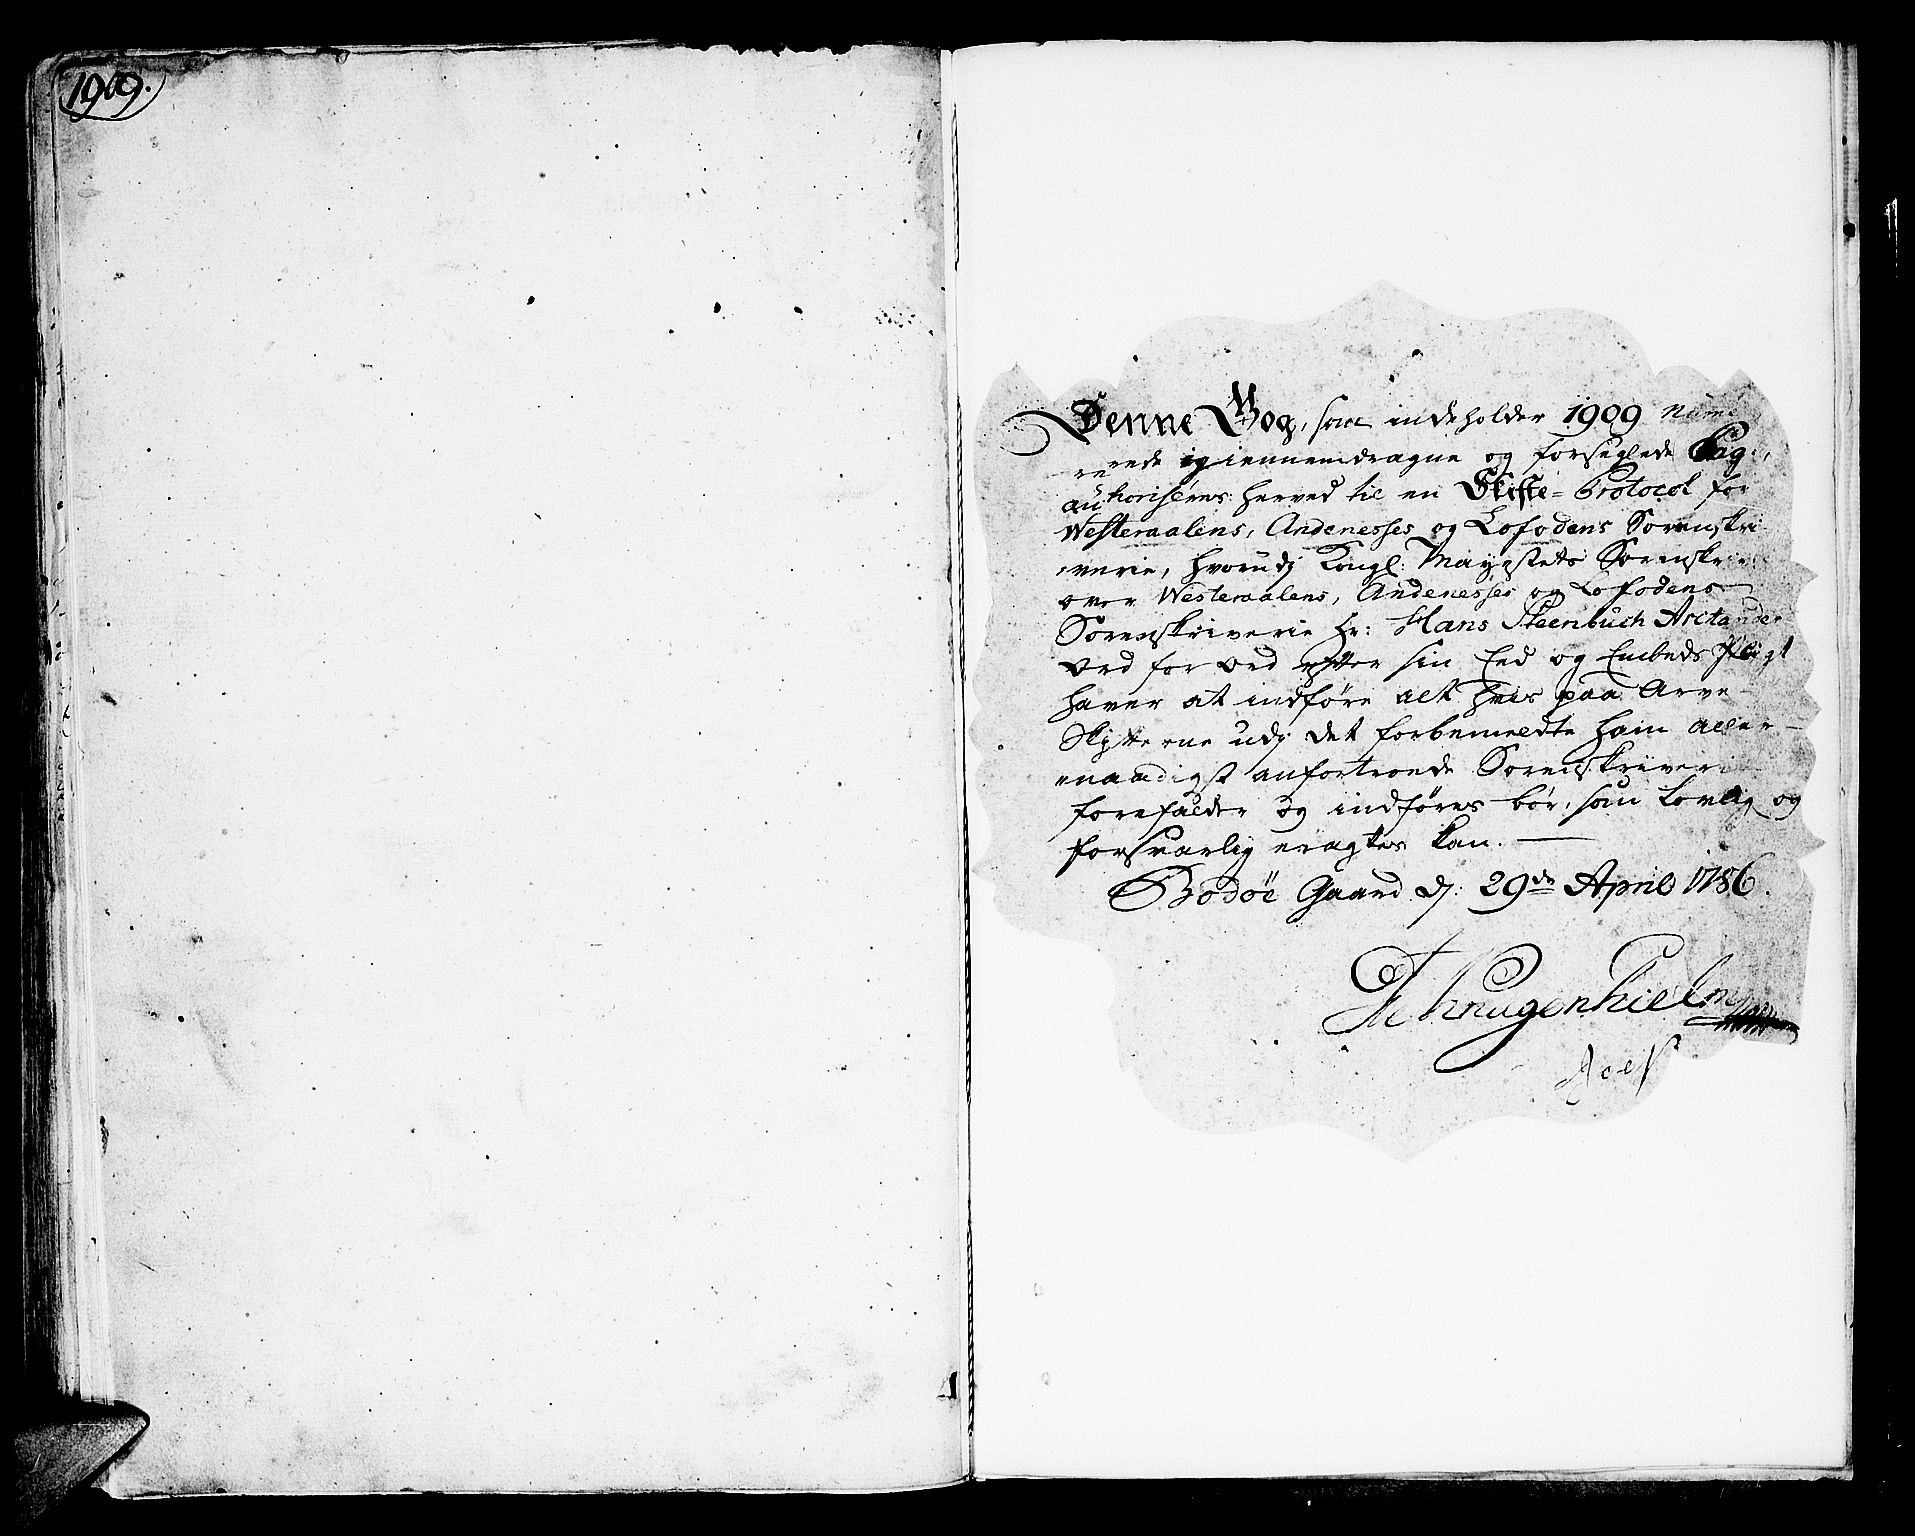 1909.
Denne Bog, som indeholder 1909 Nume
rerede igiennemdragne og forseglede Pag:,
authoriseres herved til en Skifte-Protocol for
Westeraalens, Andenesses og Lofodens Sorenskri
verie, hvorudj Kongl: Mayestets Sorenskriver
over Westeraalens, Andenesses og Lofodens
Sorenskriverie Hr: Hans Steenbuch Arctander
Ord for Ord efter sin Eed og Embeds Pligt
haver at indføre alt hvis paa Arve-
Skifterne udj det forbemeldte ham aller-
naadigst anfortroede Sorenskriverie
forefalder og indføres bør, som Lovlig og
forsvarlig eragtes kan.
Bodøe Gaard dj: 29de April 1786.
Knagenhielm